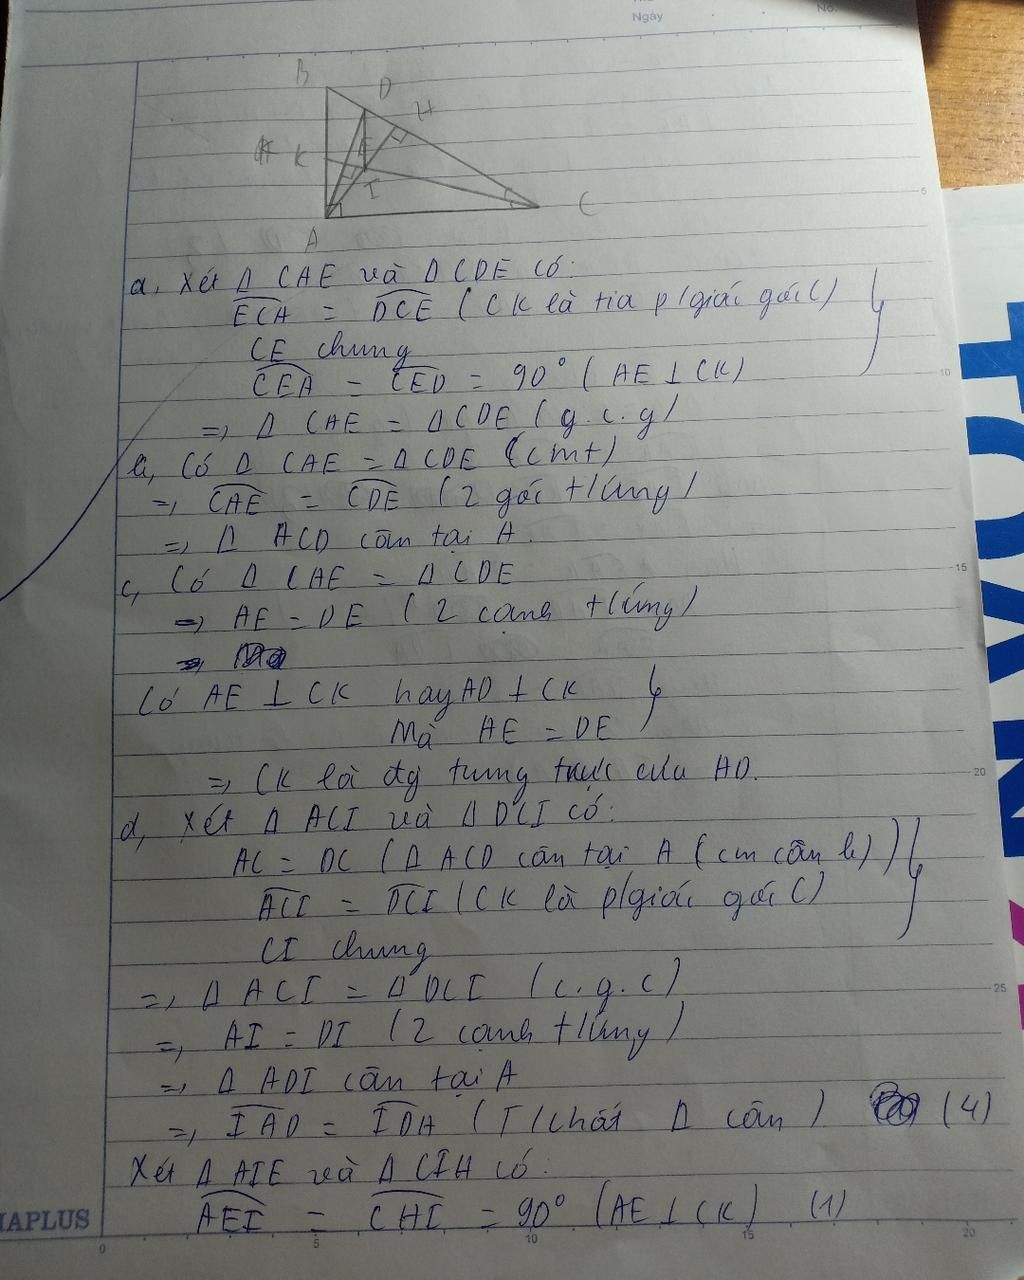 Ngày
No.
B
D
H
K
E
I
A
C
a, Xét Δ CAE và Δ CDE có:
ECA = DCE ( CK là tia p/giác góc C)
CE chung
CEA = CED = 90° ( AE ⊥ CK)
=> Δ CAE = Δ CDE ( g.c.g)
b, Có Δ CAE = Δ CDE (cmt)
=> CAE = CDE ( 2 góc t/ứng)
=> Δ ACD cân tại A.
c, Có Δ CAE = Δ CDE
=> AE = DE ( 2 cạnh t/ứng)
=>
Có AE ⊥ CK hay AD ⊥ CK
Mà AE = DE
=> CK là đg trung trực của AD.
d, Xét Δ ACI và Δ DCI có:
AC = DC ( Δ ACD cân tại A ( cm câu b) )
ACI = DCI ( CK là p/giác góc C)
CI chung
=> Δ ACI = Δ DCI ( c.g.c)
=> AI = DI ( 2 cạnh t/ứng)
=> Δ ADI cân tại A
=> IAD = IDA ( T/chất Δ cân ) (4)
Xét Δ AIE và Δ CIH có:
AEI = CHI = 90° (AE ⊥ CK) (1)
5
10
15
20
25
HAPLUS
0
5
10
15
20